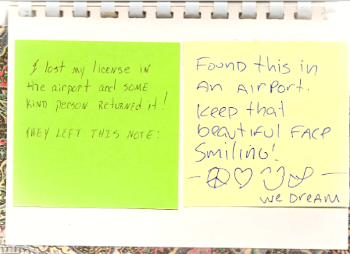 I lost my license in
the airport and some
kind person returned it!
They left this note:
Found this in
an airport.
Keep that
beautiful face
smiling!
We Dream